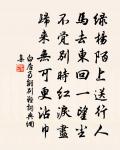 綠楊陌上送行人
馬去車回一望塵
不覺別時紅淚盡
歸來無可更沾巾
白居易離別難詞典網
集